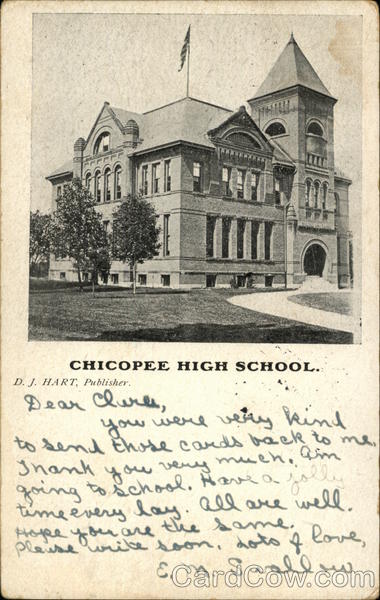 CHICOPEE HIGH SCHOOL.
D. J. HART, Publisher.
Dear Clara,
you were very kind
to send those cards back to me.
Thank you very much. Am
going to school. Have a jolly
time every day. All are well.
Hope you are the same.
Please write soon, Lots of love,
CardCow.com